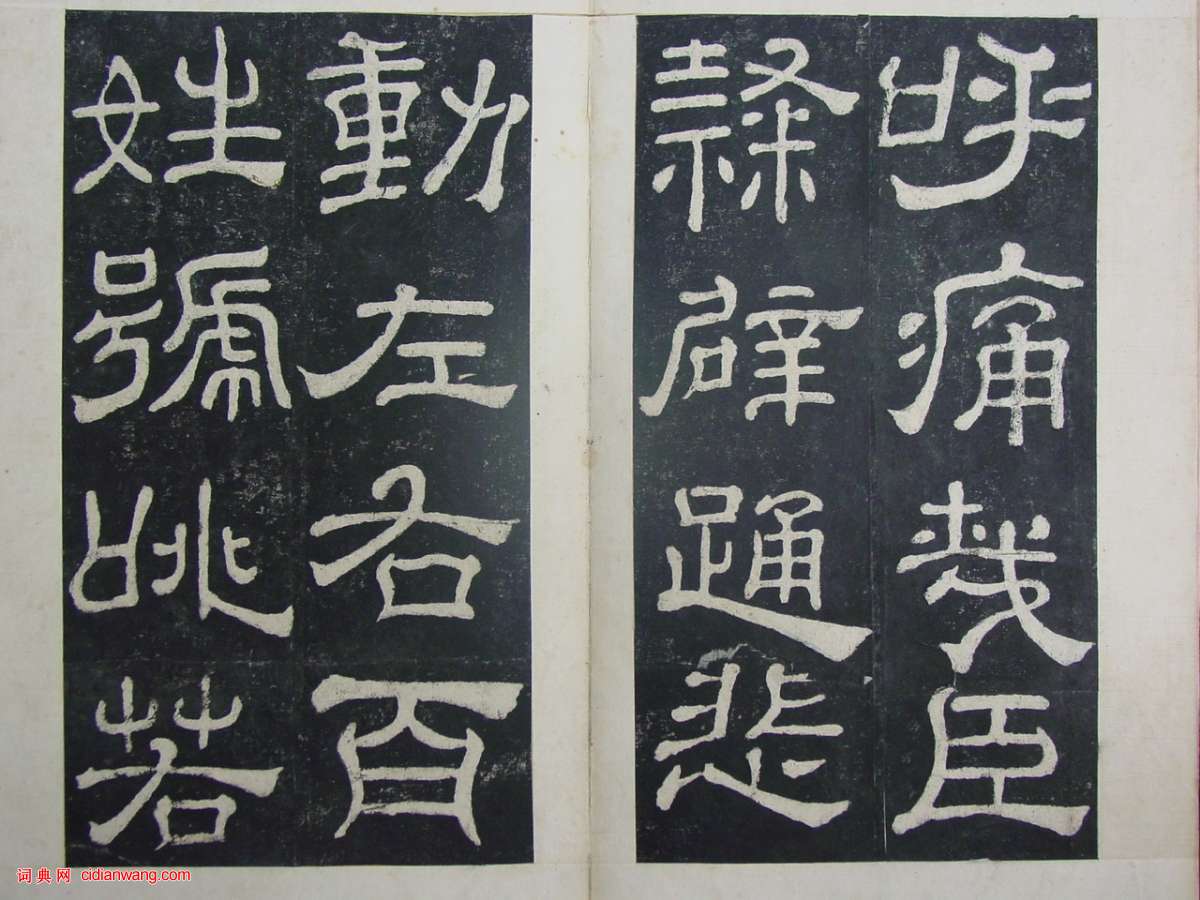 呼痛哉臣
隸辟踊悲
動左右百
姓號咷若
词典网 cidianwang.com